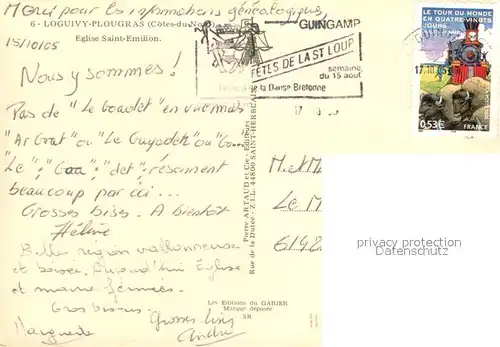 Merci pour les informations généalogiques,
6 - LOGUIVY-PLOUGRAS (Côtes-du-No
Eglise Saint-Emilion.
15/10/05
Nous y sommes !
Pas de "Le Goadet" en vue mais
"Ar Grat" ou "Le Guyadeh" ou "Go..."
"Le "; "Gaa"; "det" résonnent
beaucoup par ici...
Grosses bises. A bientôt
Hélène
Belle région vallonneuse
et boisée. Aujourd'hui Église
et mairie fermées.
Gros bisous.
Marguerite
Grosses bises
André
Les Editions du GABIER
Marque déposée
SR
Pierre ARTAUD et Cie - Editeurs
Rue de la Dutée - Z.I.L. 44800 SAINT-HERBLAIN
GUINGAMP
FÊTES DE LA ST LOUP
semaine
du 15 août
de la Danse Bretonne
LE TOUR DU MONDE
EN QUATRE-VINGTS
JOURS
17.10.05
0,53€
FRANCE
M. et M
Le M
6142
privacy protection
Datenschutz